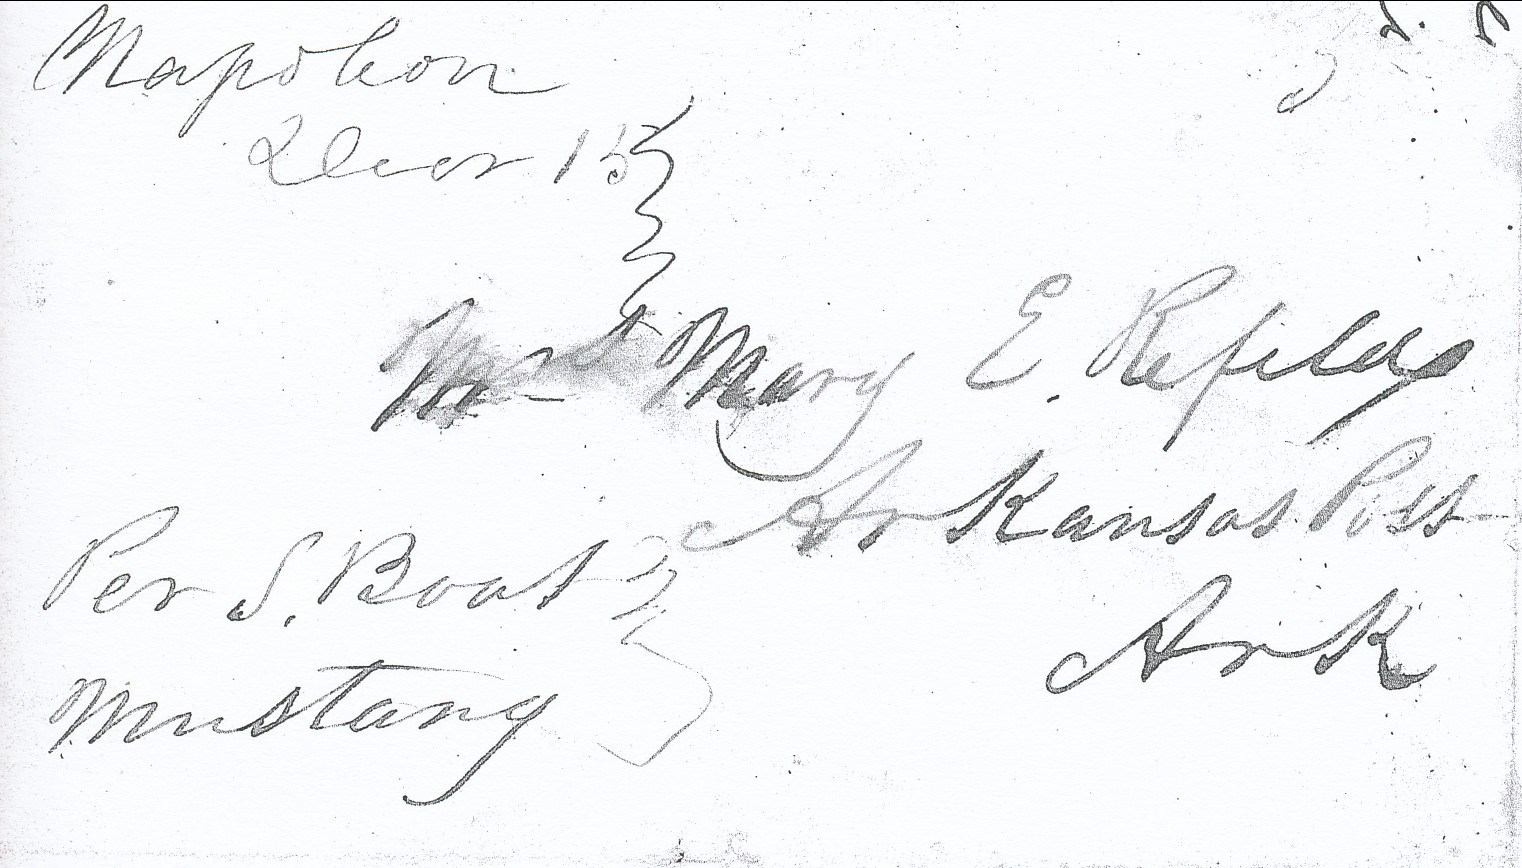 Napoleon
Decr 15
Mrs Mary E. Refeld
Arkansas Post
Ark
Per S. Boat
Mustang